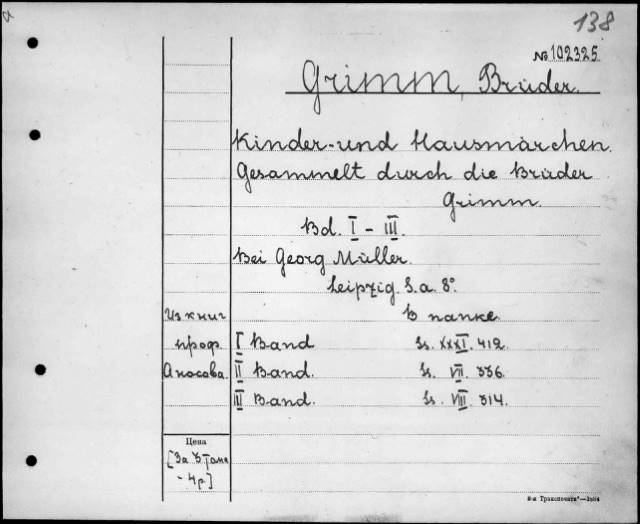 138
№ 102325
Grimm, Brüder.
Kinder-und Hausmärchen.
Gesammelt durch die Brüder
Grimm.
Bd. I - III.
Bei Georg Müller.
Leipzig. S. a. 8°.
Из книг В папке
проф. I Band Ss. XXXI. 412.
Аносова. II Band. Ss. VII. 336.
III Band. Ss. VIII. 314.
Цена
[За 3 тома
- 4 р.]